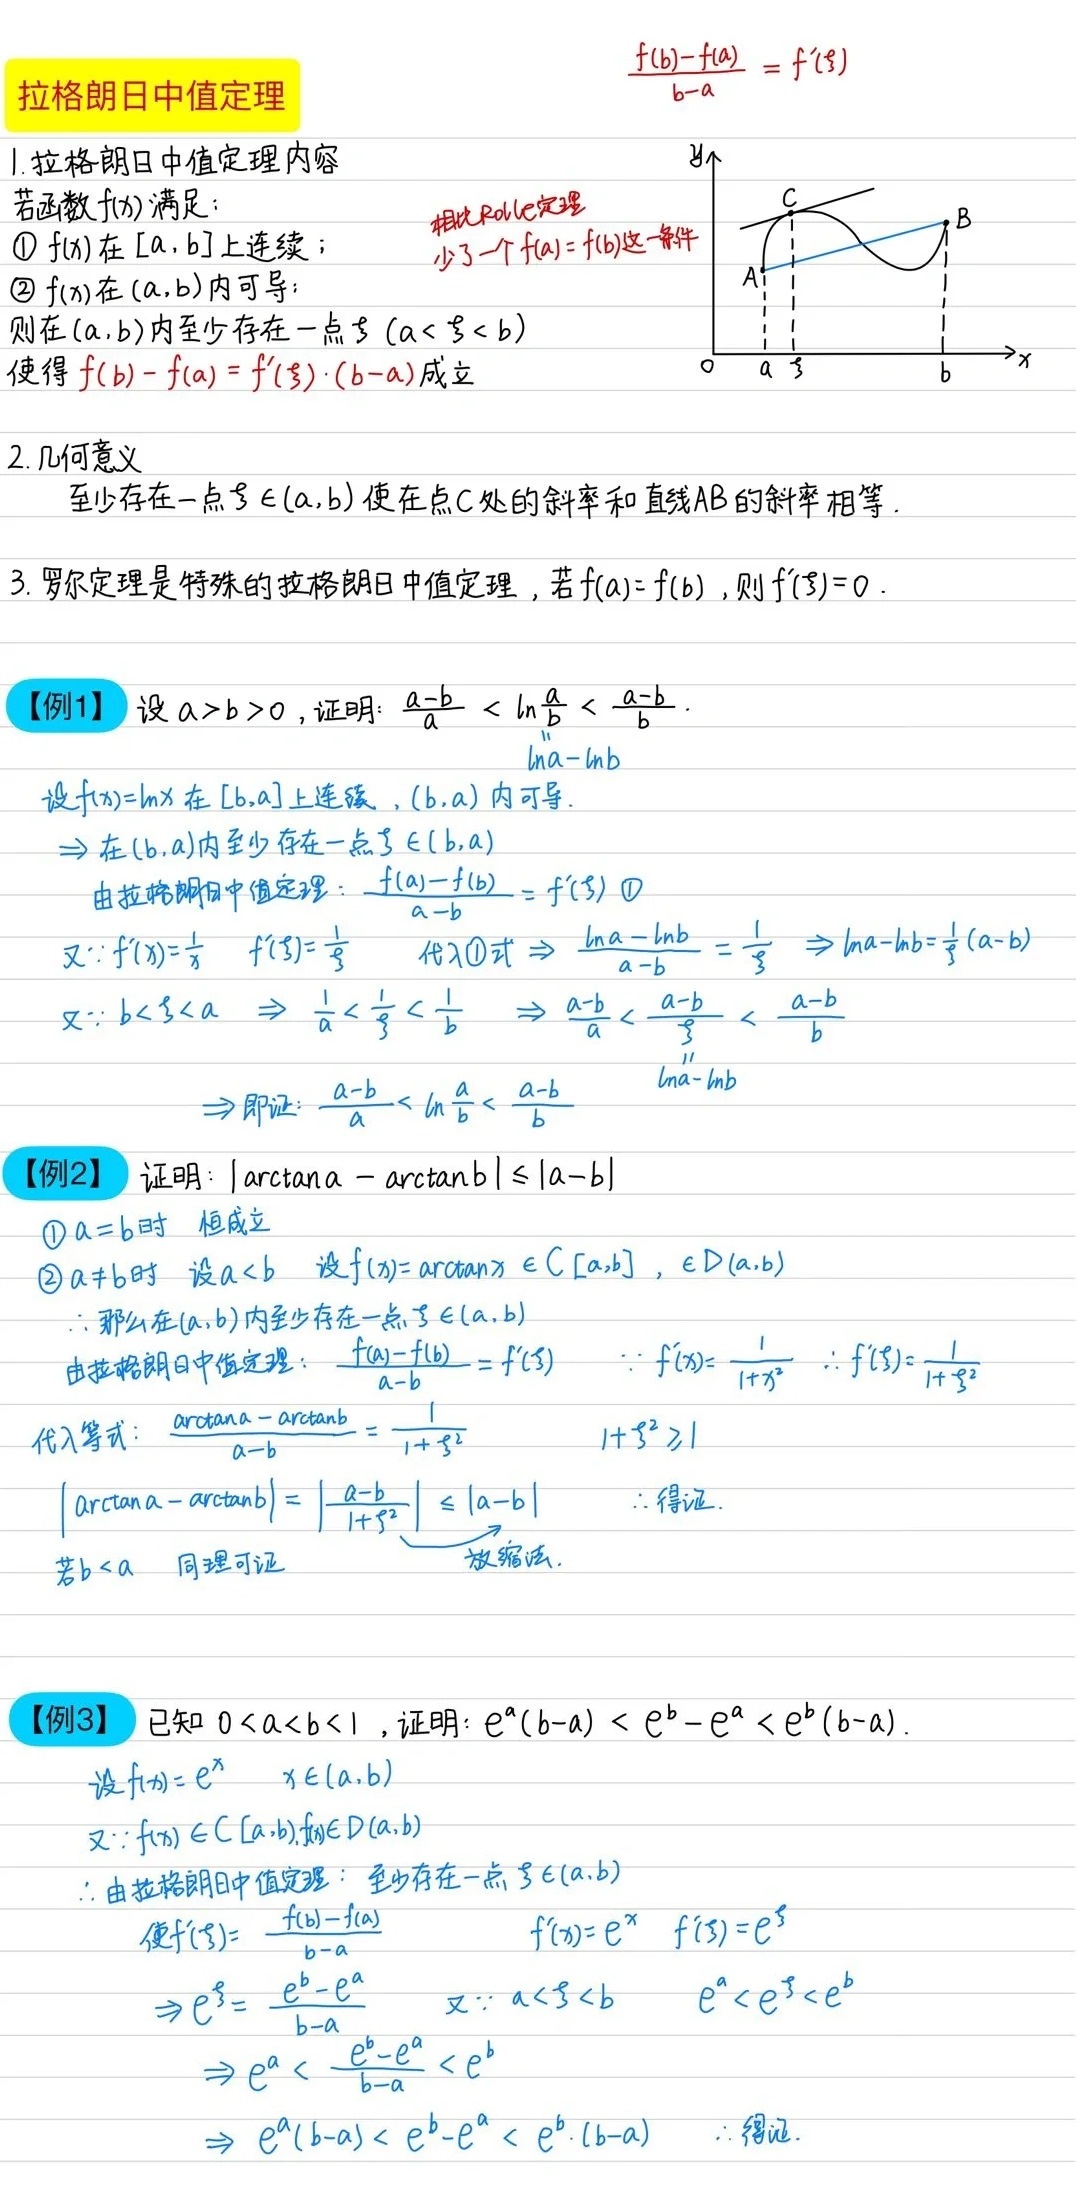 拉格朗日中值定理
(f(b)-f(a))/(b-a) = f′(ξ)
1.拉格朗日中值定理内容
若函数f(x)满足:
① f(x)在[a,b]上连续;
② f(x)在(a,b)内可导;
则在(a,b)内至少存在一点ξ (a<ξ<b)
使得 f(b)-f(a)=f′(ξ)·(b-a)成立
相比Rolle定理
少了一个f(a)=f(b)这一条件
y
C
B
A
0 a ξ b x
2.几何意义
至少存在一点ξ∈(a,b)使在点C处的斜率和直线AB的斜率相等.
3.罗尔定理是特殊的拉格朗日中值定理,若f(a)=f(b),则f′(ξ)=0.
【例1】 设a>b>0,证明: (a-b)/a < ln a/b < (a-b)/b.
=
lna-lnb
设f(x)=lnx在[b,a]上连续,(b,a)内可导.
⇒ 在(b,a)内至少存在一点ξ∈(b,a)
由拉格朗日中值定理: (f(a)-f(b))/(a-b) = f′(ξ) ①
又∵f′(x)=1/x f′(ξ)=1/ξ 代入①式 ⇒ (lna-lnb)/(a-b) = 1/ξ ⇒ lna-lnb=1/ξ(a-b)
又∵ b<ξ<a ⇒ 1/a < 1/ξ < 1/b ⇒ (a-b)/a < (a-b)/ξ < (a-b)/b
=
lna-lnb
⇒ 即证: (a-b)/a < ln a/b < (a-b)/b
【例2】 证明: |arctana - arctanb| ≤ |a-b|
① a=b时 恒成立
② a≠b时 设a<b 设f(x)=arctanx ∈C[a,b], ∈D(a,b)
∴那么在(a,b)内至少存在一点ξ∈(a,b)
由拉格朗日中值定理: (f(a)-f(b))/(a-b) = f′(ξ) ∵ f′(x)= 1/(1+x²) ∴ f′(ξ)= 1/(1+ξ²)
代入等式: (arctana-arctanb)/(a-b) = 1/(1+ξ²) 1+ξ²≥1
|arctana-arctanb| = |(a-b)/(1+ξ²)| ≤ |a-b| ∴得证.
若b<a 同理可证 放缩法.
【例3】 已知 0<a<b<1,证明: eᵃ(b-a) < eᵇ-eᵃ < eᵇ(b-a).
设f(x)=eˣ x∈(a,b)
又∵f(x)∈C[a,b),f(x)∈D(a,b)
∴由拉格朗日中值定理: 至少存在一点ξ∈(a,b)
使f′(ξ)= (f(b)-f(a))/(b-a) f′(x)=eˣ f′(ξ)=e^ξ
⇒ e^ξ = (eᵇ-eᵃ)/(b-a) 又∵ a<ξ<b eᵃ<e^ξ<eᵇ
⇒ eᵃ < (eᵇ-eᵃ)/(b-a) < eᵇ
⇒ eᵃ(b-a) < eᵇ-eᵃ < eᵇ·(b-a) ∴得证.